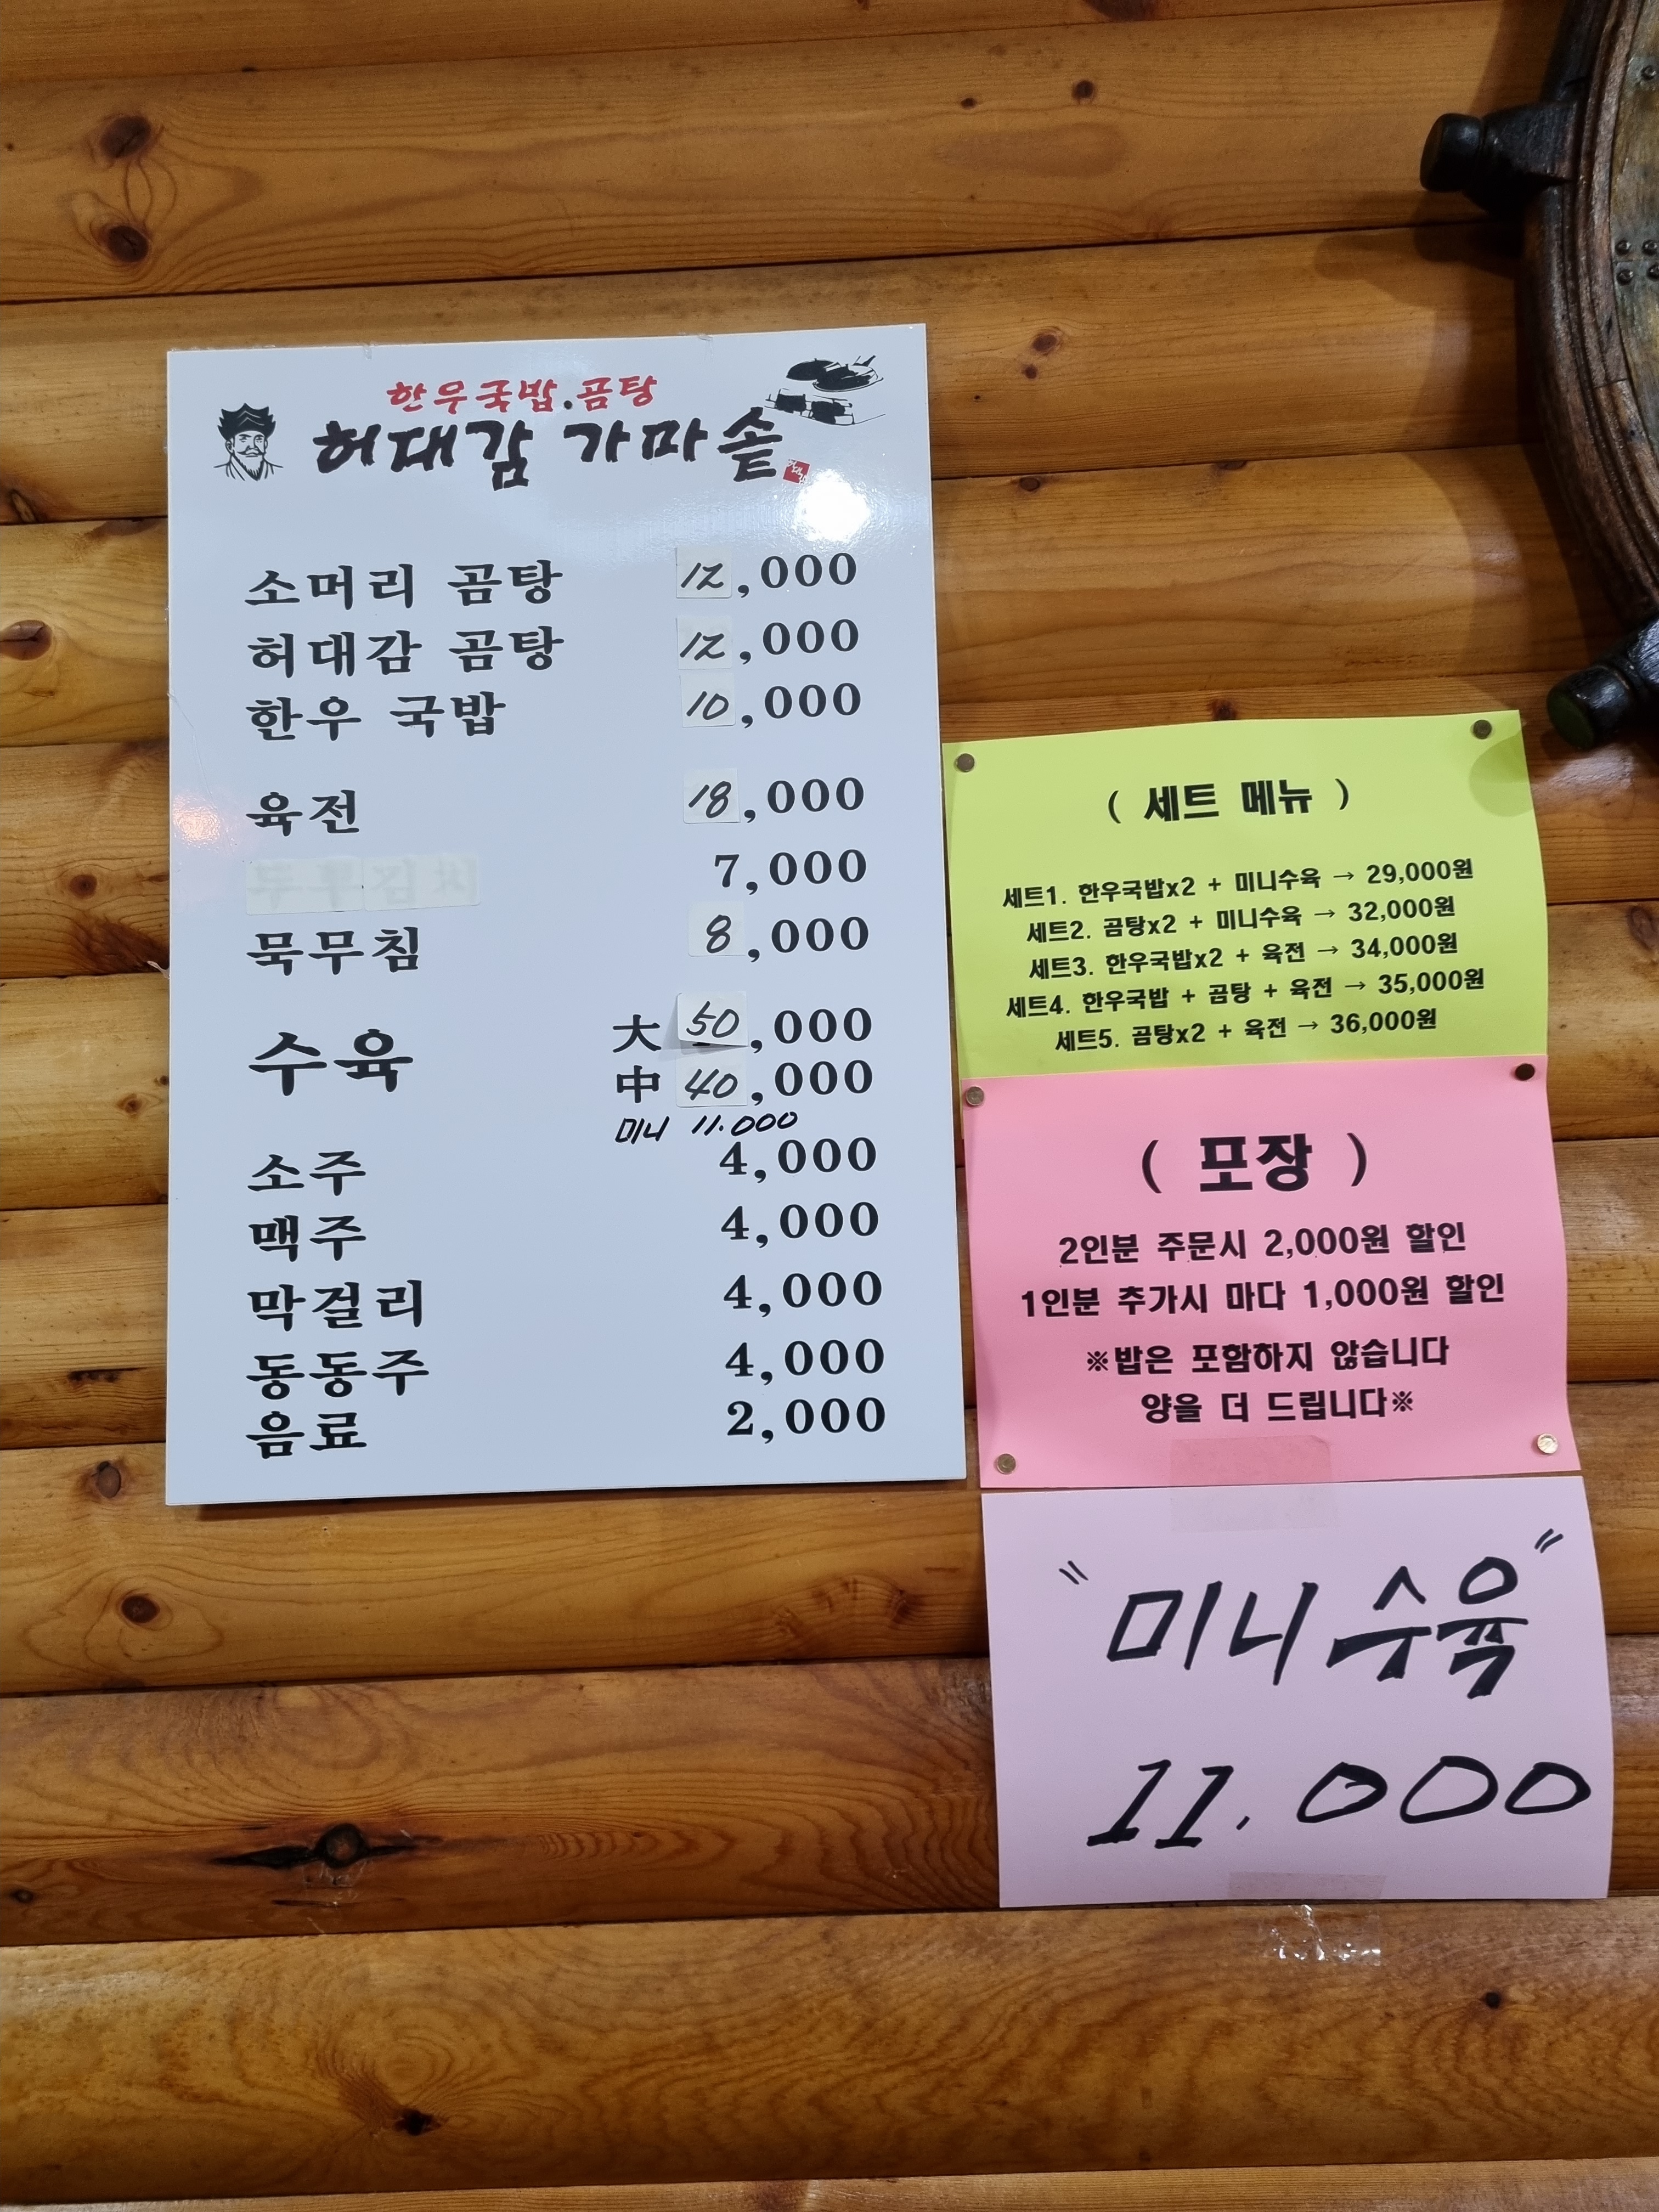 한우국밥.곰탕
허대감 가마솥
소머리 곰탕 12,000
허대감 곰탕 12,000
한우 국밥 10,000
육전 18,000
두부김치 7,000
묵무침 8,000
수육 大 50,000
中 40,000
미니 11.000
소주 4,000
맥주 4,000
막걸리 4,000
동동주 4,000
음료 2,000
( 세트 메뉴 )
세트1. 한우국밥x2 + 미니수육 → 29,000원
세트2. 곰탕x2 + 미니수육 → 32,000원
세트3. 한우국밥x2 + 육전 → 34,000원
세트4. 한우국밥 + 곰탕 + 육전 → 35,000원
세트5. 곰탕x2 + 육전 → 36,000원
( 포장 )
2인분 주문시 2,000원 할인
1인분 추가시 마다 1,000원 할인
※밥은 포함하지 않습니다
양을 더 드립니다※
"미니수육"
11.000